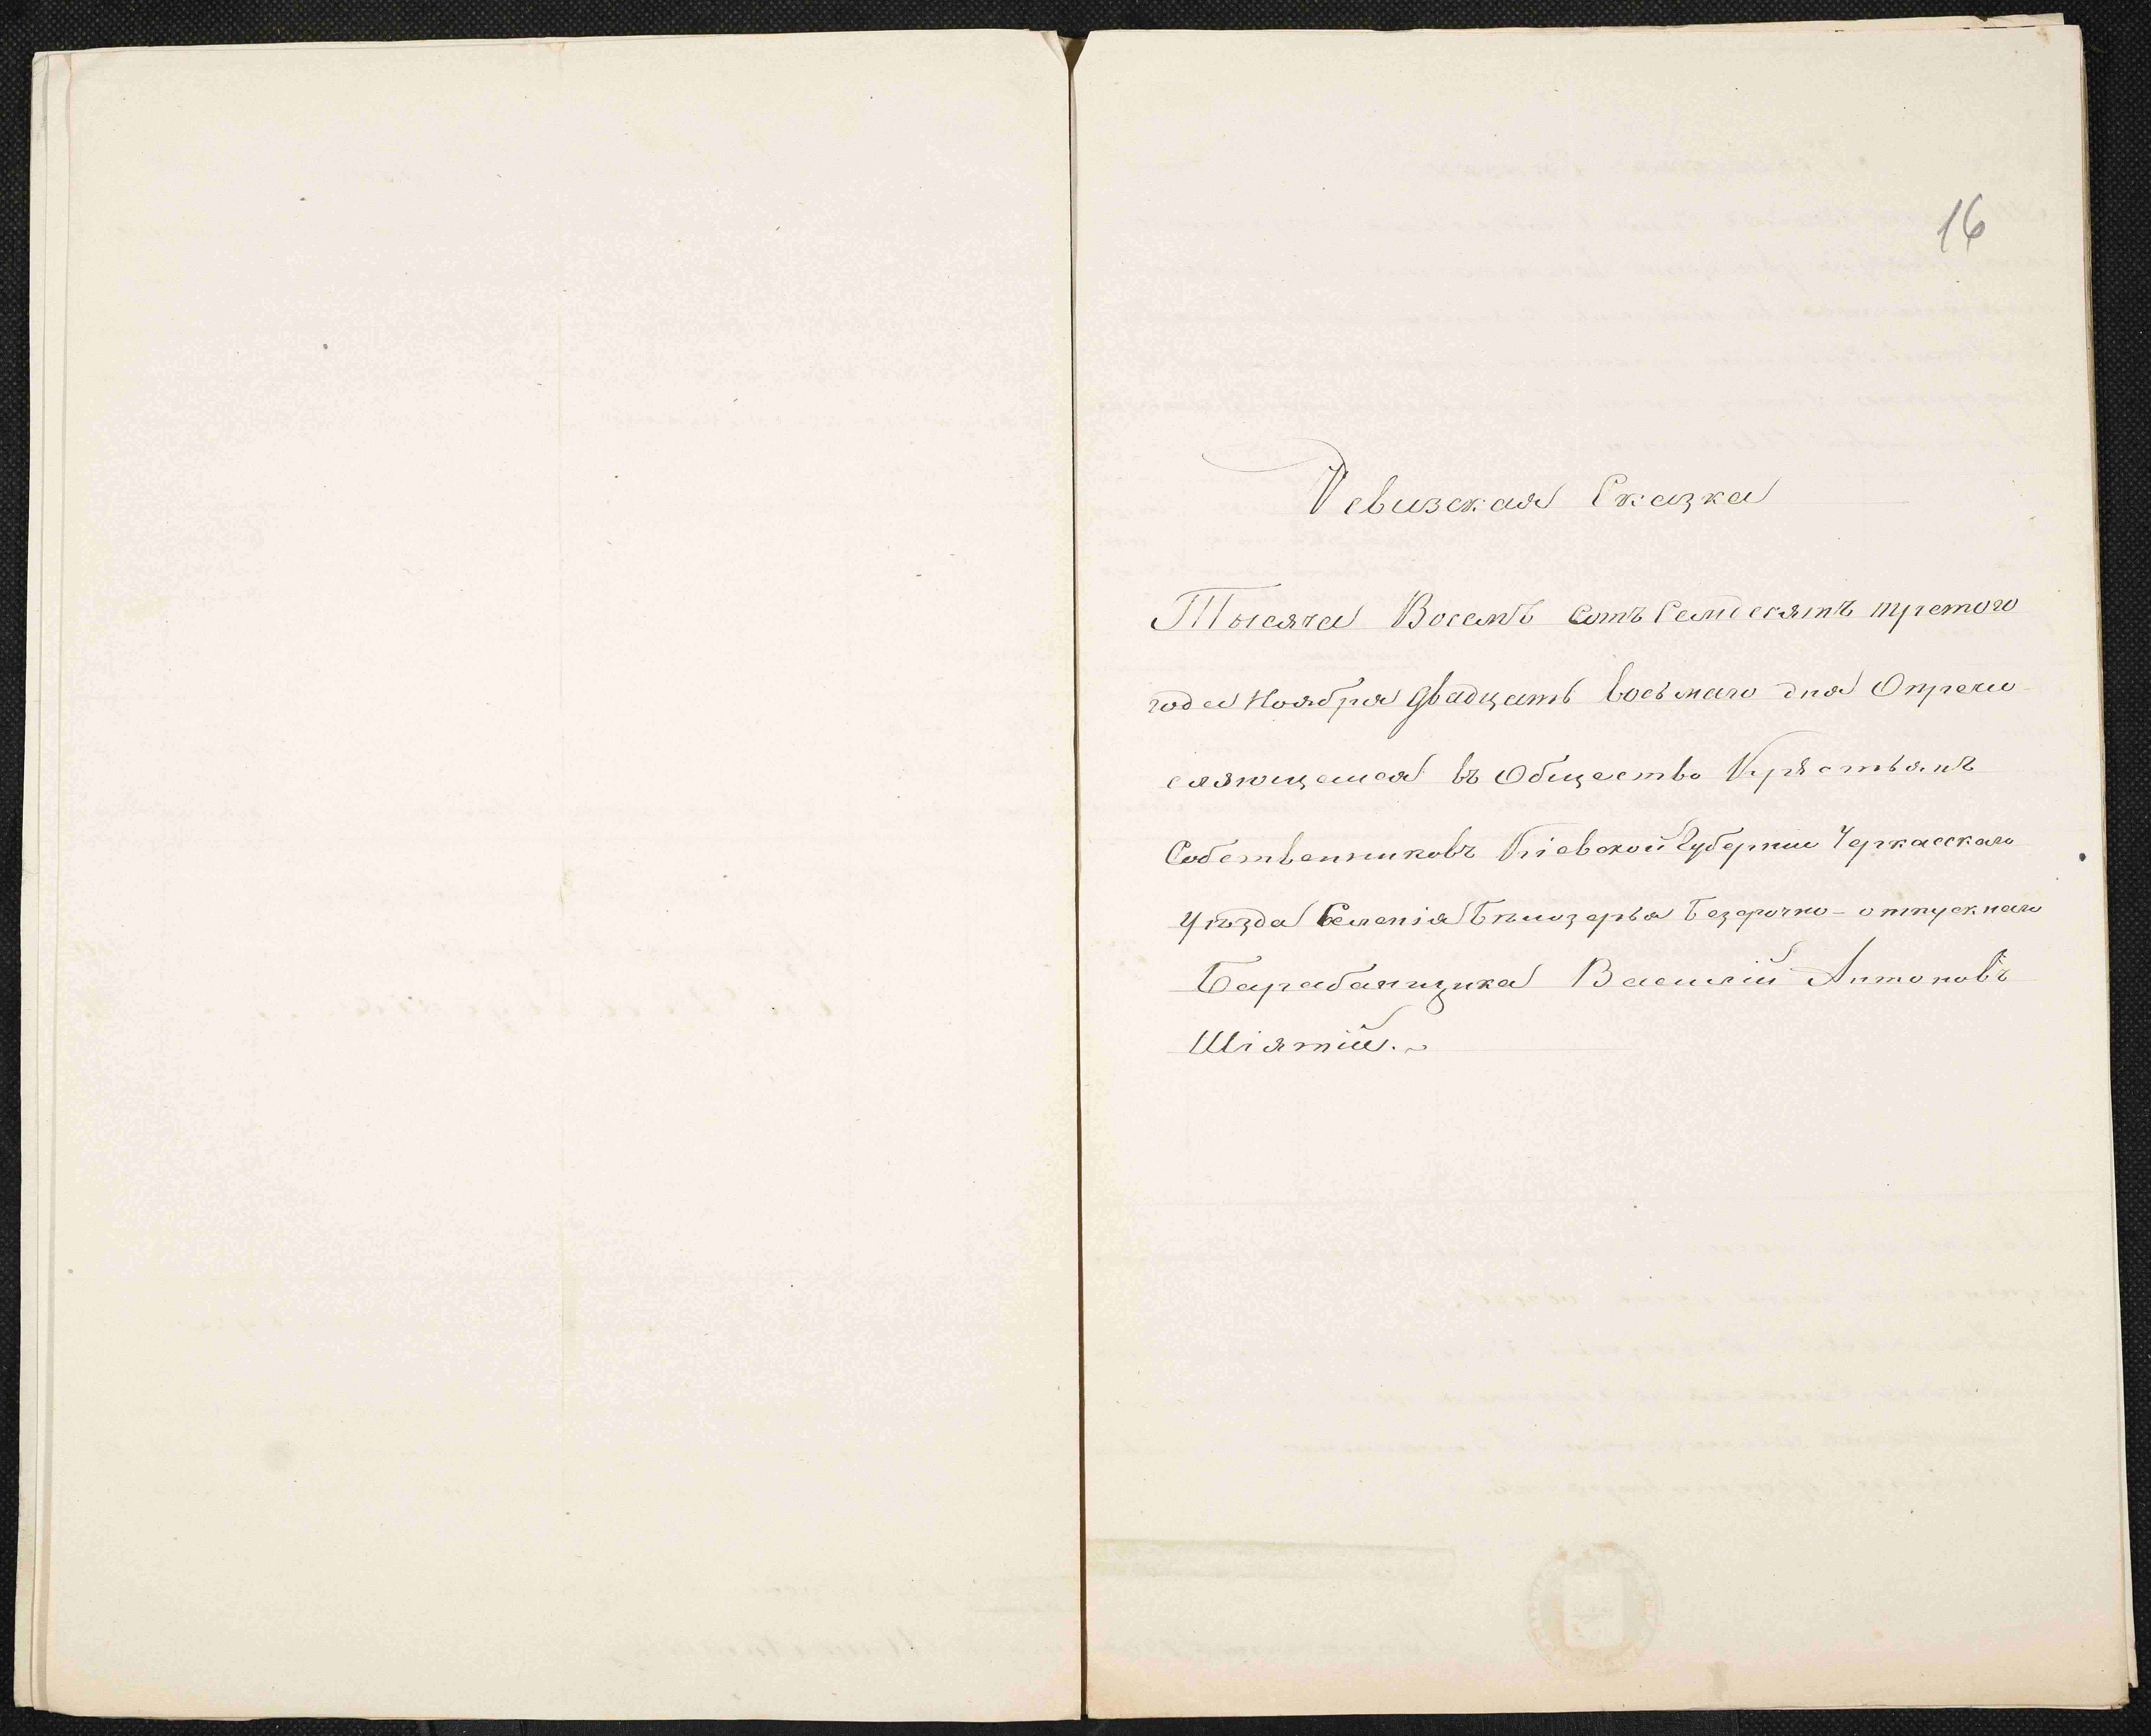 16
Ревизская Сказка
Тысяча Восемъ сотъ Семдесятъ третого
года Ноября двадцать восьмаго дня О причи-
сляющемся въ Общество Крѣстьянъ
Собственниковъ Кіевской Губерніи Черкасскаго
Уѣзда Селенія Бѣлозерья безсрочно-отпускнаго
Барабанщика Василій Антоновъ
Шіятій.